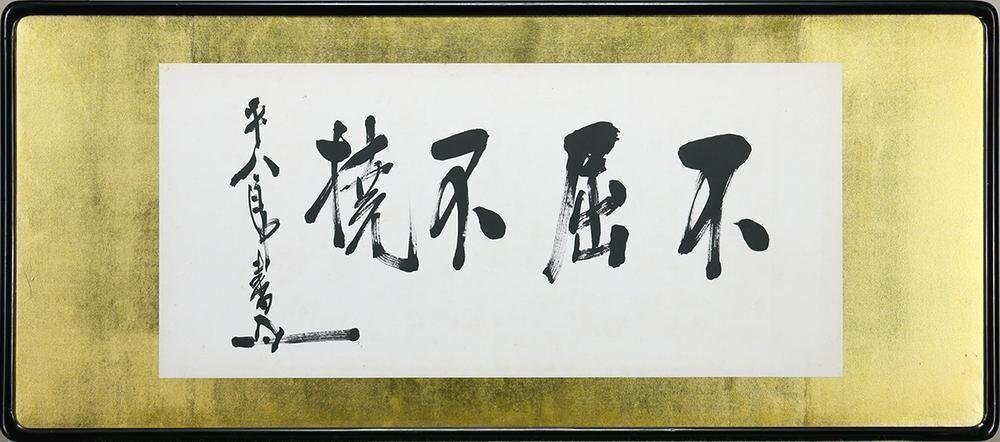 不屈不撓
平八郎書